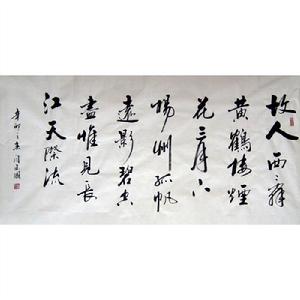 故人西辞
黄鶴楼煙
花三月下
揚州孤帆
遠影碧空
盡惟見長
江天際流
辛卯之